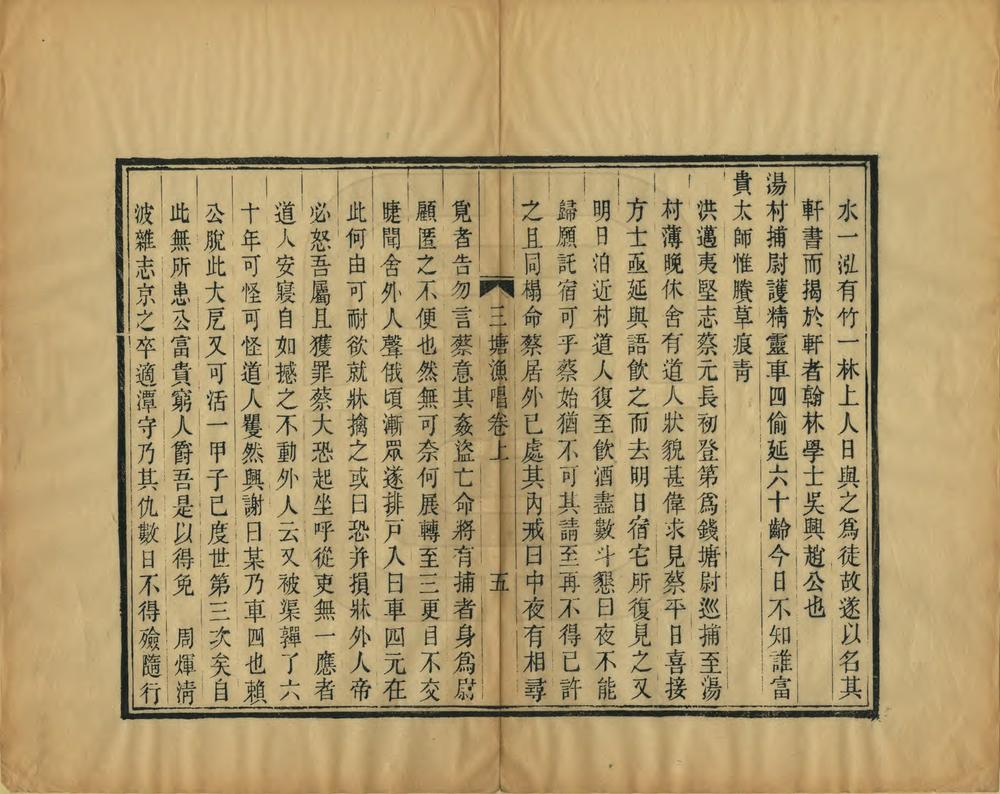 水一泓有竹一林上人日與之爲徒故遂以名其
軒書而揭於軒者翰林學士吳興趙公也
湯村捕尉護精靈車四偷延六十齡今日不知誰富
貴太師惟賸草痕青
洪邁夷堅志蔡元長初登第爲錢塘尉巡捕至湯
村薄晚休舍有道人狀貌甚偉求見蔡平日喜接
方士亟延與語飲之而去明日宿它所復見之又
明日泊近村道人復至飲酒盡數斗懇曰夜不能
歸願託宿可乎蔡始猶不可其請至再不得已許
之且同榻命蔡居外已處其內戒曰中夜有相尋
三塘漁唱卷上 五
覓者告勿言蔡意其姦盜亡命將有捕者身爲尉
顧匿之不便也然無可奈何展轉至三更目不交
睫聞舍外人聲俄頃漸眾遂排戸入曰車四元在
此何由可耐欲就牀擒之或曰恐并損牀外人帝
必怒吾屬且獲罪蔡大恐起坐呼從吏無一應者
道人安寢自如撼之不動外人云又被渠嚲了六
十年可怪可怪道人矍然興謝曰某乃車四也賴
公脫此大戹又可活一甲子已度世第三次矣自
此無所患公富貴窮人爵吾是以得免 周煇清
波雜志京之卒適潭守乃其仇數日不得殮隨行